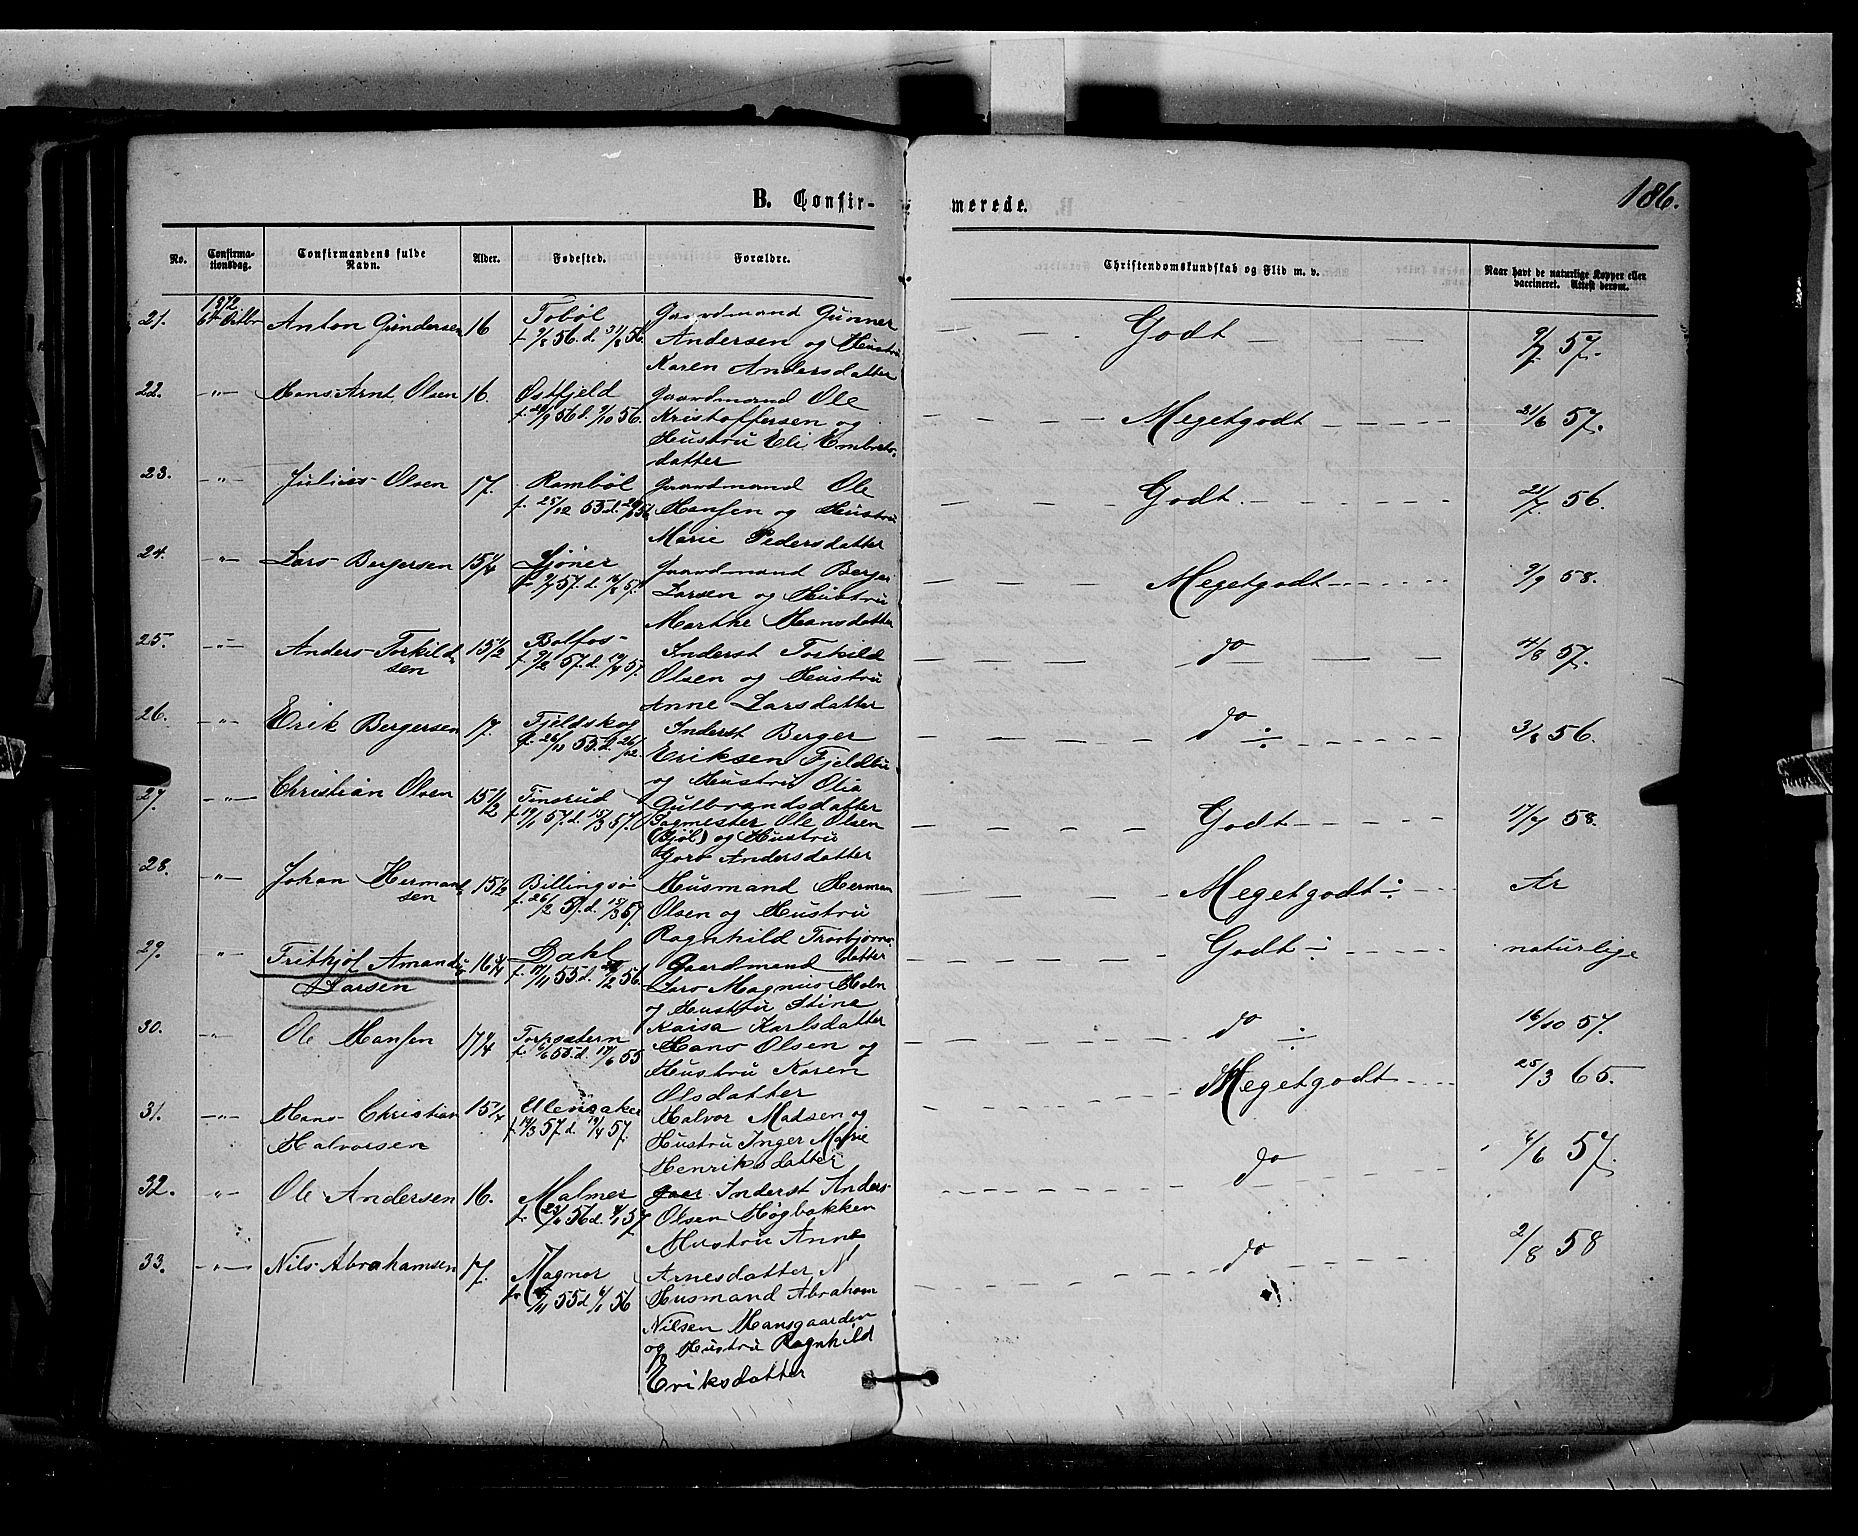 B. Confir-
merede.
186.
No.
Confirma-
tionsdag.
Confirmandens fulde
Navn.
Alder.
Fødested.
Forældre.
Christendomskundskab og Flid m. v.
Naar havt de naturlige Kopper eller
vaccineret. Attest derom.
21. 1872 6te Octbr Anton Gundersen 16 Tobøl Gaardmand Gunner
Andersen og Hustru
Karen Andersdatter
Godt
9/7 57.
22. " Hans Arnt Olsen 16. Østfjeld Gaardmand Ole
Kristoffersen og
Hustru Eli Embrets-
datter
Megetgodt
21/6 57.
23. " Julius Olsen 17. Rambøl Gaardmand Ole
f. 25/12 55 d. Hansen og Hustru
Marie Pedersdatter
Godt
21/7 56.
24. " Lars Bergersen 15 1/4 Sjøner Gaardmand Berger
Larsen og Hustru
Marthe Hansdatter
Megetgodt
9/9 58.
25. " Anders Torkild-
sen 15 1/2 Bolfos Inderst Torkild
Olsen og Hustru
Anne Larsdatter
do
11/8 57.
26. " Erik Bergersen 17. Fjeldskog Inderst Berger
f. 26/10 55 d. 26/12 Eriksen Fjeldbu
og Hustru Olia
Gulbrandsdatter
do
3/8 56.
27. " Christian Olsen 15 1/2 Tinsrud
Sagmester Ole Olsen
(Bjøl) og Hustru
Goro Andersdatter
Godt
17/7 58.
28. " Johan Hermand-
sen 15 1/2 Billingsø Husmand Herman
f. 26/2 57. d. 15/3 57 Olsen og Hustru
Ragnhild Thorbjørns-
datter
Megetgodt
Ar
29. " Frithjof Amandus
Larsen 16 3/4 Dahl Gaardmand
Lars Magnus Holm
og Hustru Stina
Kaisa Karlsdatter
Godt
naturlige
30. " Ole Hansen 17 1/4 Torpsætern Hans Olsen og
Hustru Karen
Olsdatter
do
16/10 57.
31. " Hans Christian
Halvorsen 15 1/2 Ullensaker Halvor Madsen og
Hustru Inger Marie
Henriksdatter
Megetgodt
25/3 65.
32. " Ole Andersen 16. Malmer Inderst Anders
Olsen Høgbakken
Hustru Anne
Arnesdatter
do
6/6 57.
33. " Nils Abrahamsen 17. Magnor
Husmand Abraham
Nilsen Hansgaarden
og Hustru Ragnhild
Eriksdatter
do
2/8 58